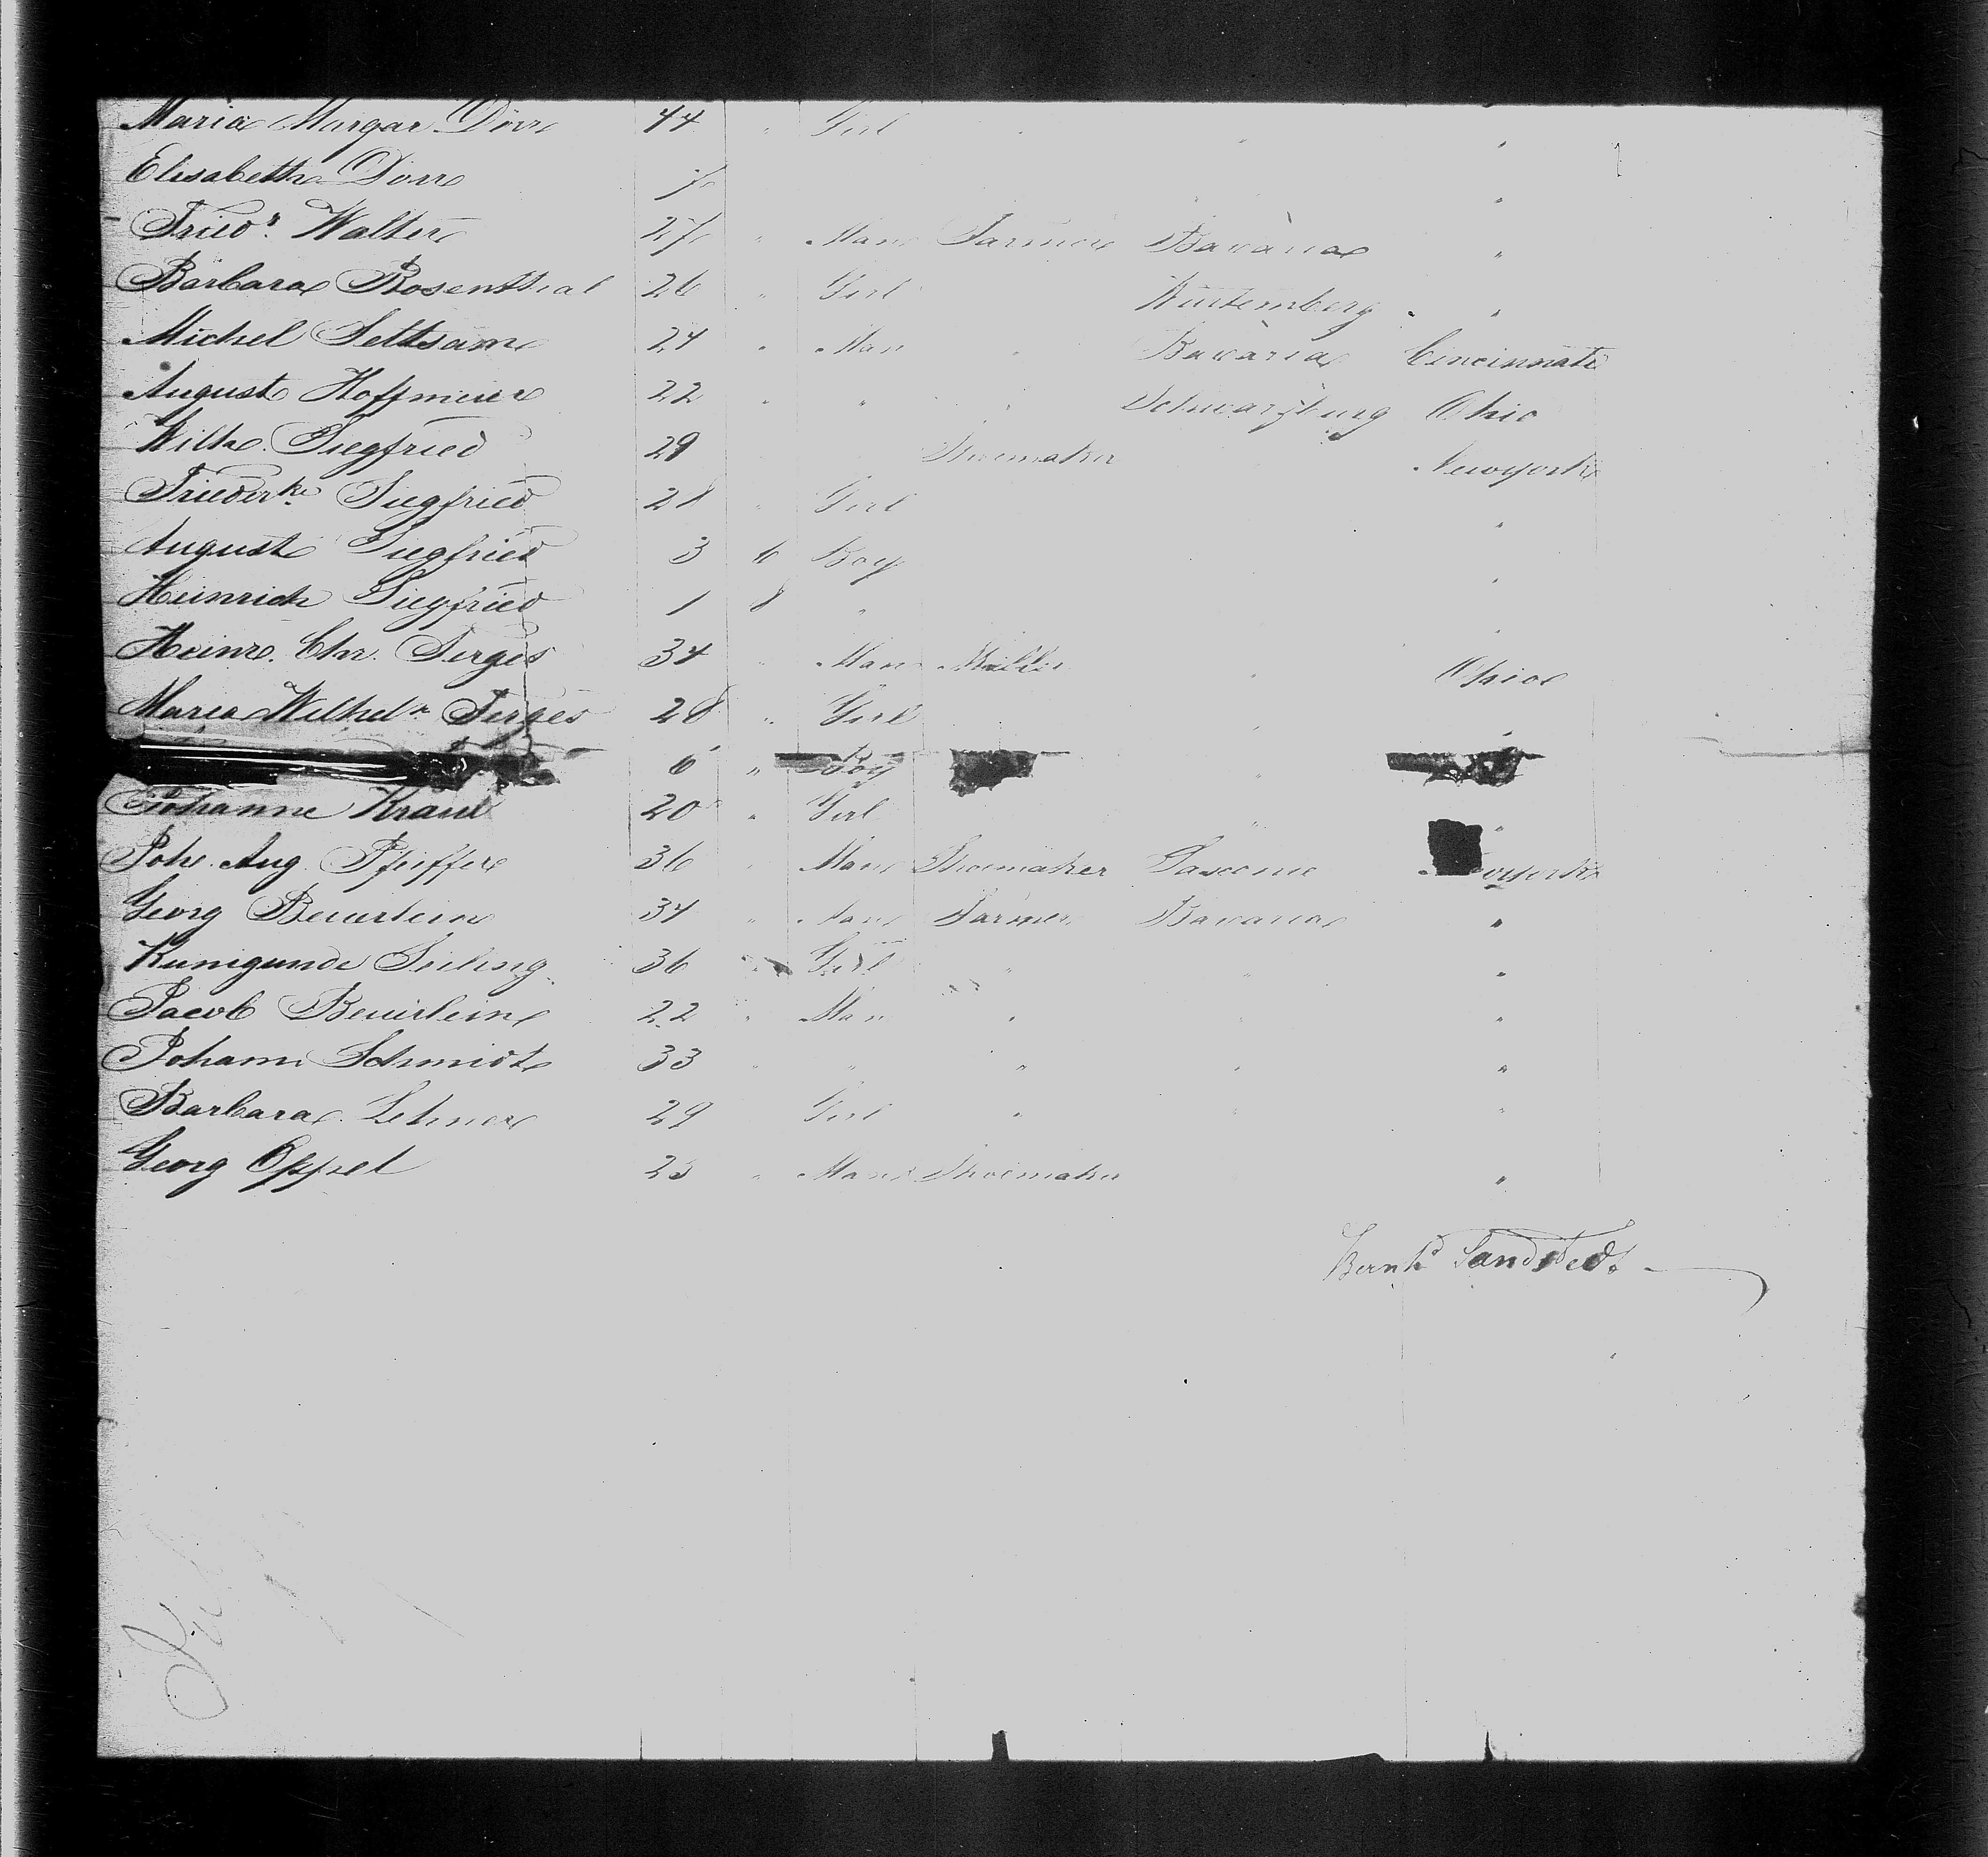 Maria Margar. Dörr 44 " Girl " "
Elisabeth Dörr 7 "
Friedr. Walter 27 " Man Farmer Bavaria "
Barbara Rosenthal 26 " Girl Würtemberg "
Michel Seltsam 24 " Man " Bavaria Cincinnati
August Hoffmeier 22 " " " Schwarzburg Ohio
Wilh. Siegfried 29 Shoemaker Newyork
Friederke Siegfried 28 " Girl "
August Siegfried 3 6 Boy "
Heinrich Siegfried 1 8 " "
Heinr. Chr. Serges 34 " Man Miller " Ohio
Maria Wilhelm Serges 28 " Girl " "
6 " Boy "
Johanne Kraul 20 " Girl " "
Joh. Aug. Pfeiffer 36 " Man Shoemaker Newyork
Georg Beuerlein 34 " Man Farmer Bavaria "
Kunigunde 36 " Girl " " "
Jacob Beuerlein 22 " Man " " "
Johann Schmidt 33 " " " " "
Barbara Lehner 29 Girl " " "
Georg Oppel 23 " Man Shoemaker "
Bernhd Sandstedt